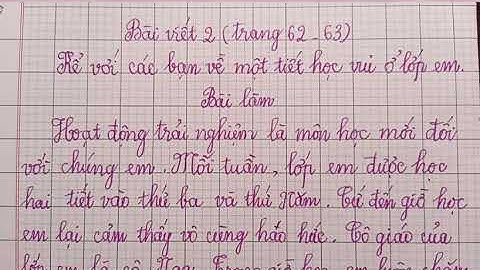 Bài viết 2 (trang 62 - 63)
Kể với các bạn về một tiết học vui ở lớp em.
Bài làm
Hoạt động trải nghiệm là môn học mới đối
với chúng em. Mỗi tuần, lớp em được học
hai tiết vào thứ ba và thứ Năm. Cứ đến giờ học
em lại cảm thấy vô cùng háo hức. Cô giáo của
lớp em là cô Nga. Trong giờ học em luôn